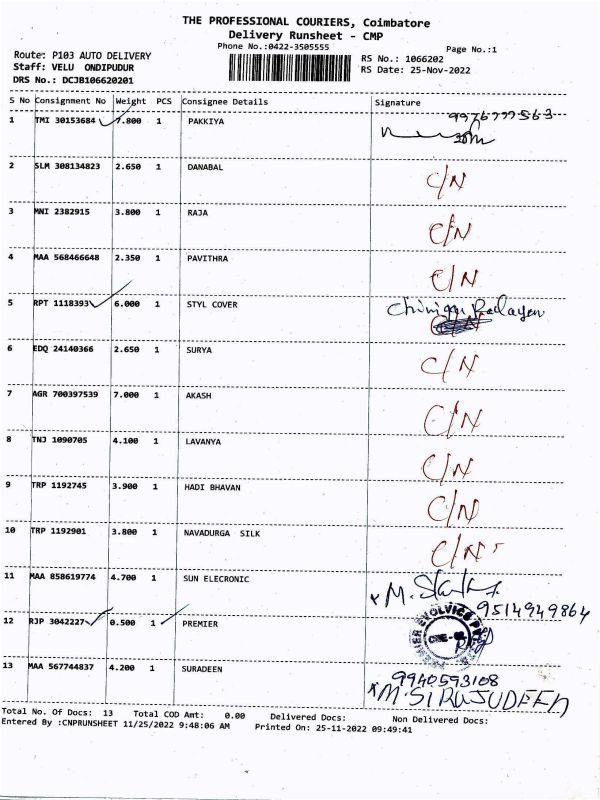 THE PROFESSIONAL COURIERS, Coimbatore
Delivery Runsheet - CMP
Phone No.:0422-3505555
Page No.:1
Route: P103 AUTO DELIVERY
RS No.: 1066202
Staff: VELU ONDIPUDUR
RS Date: 25-Nov-2022
DRS No.: DCJB106620201
S No Consignment No Weight PCS Consignee Details Signature
1 TMI 30153684 7.800 1 PAKKIYA 9976777563
2 SLM 308134823 2.650 1 DANABAL C/N
3 MNI 2382915 3.800 1 RAJA C/N
4 MAA 568466648 2.350 1 PAVITHRA C/N
5 RPT 1118393 6.000 1 STYL COVER
6 EDQ 24140366 2.650 1 SURYA C/N
7 AGR 700397539 7.000 1 AKASH C/N
8 TNJ 1090705 4.100 1 LAVANYA C/N
9 TRP 1192745 3.900 1 HADI BHAVAN C/N
10 TRP 1192901 3.800 1 NAVADURGA SILK C/N
11 MAA 858619774 4.700 1 SUN ELECRONIC
9514949864
12 RJP 3042227 0.500 1 PREMIER
13 MAA 567744837 4.200 1 SURADEEN 9940593108
M.SIRAJUDEEN
Total No. Of Docs: 13 Total COD Amt: 0.00 Delivered Docs: Non Delivered Docs:
Entered By :CNPRUNSHEET 11/25/2022 9:48:06 AM Printed On: 25-11-2022 09:49:41